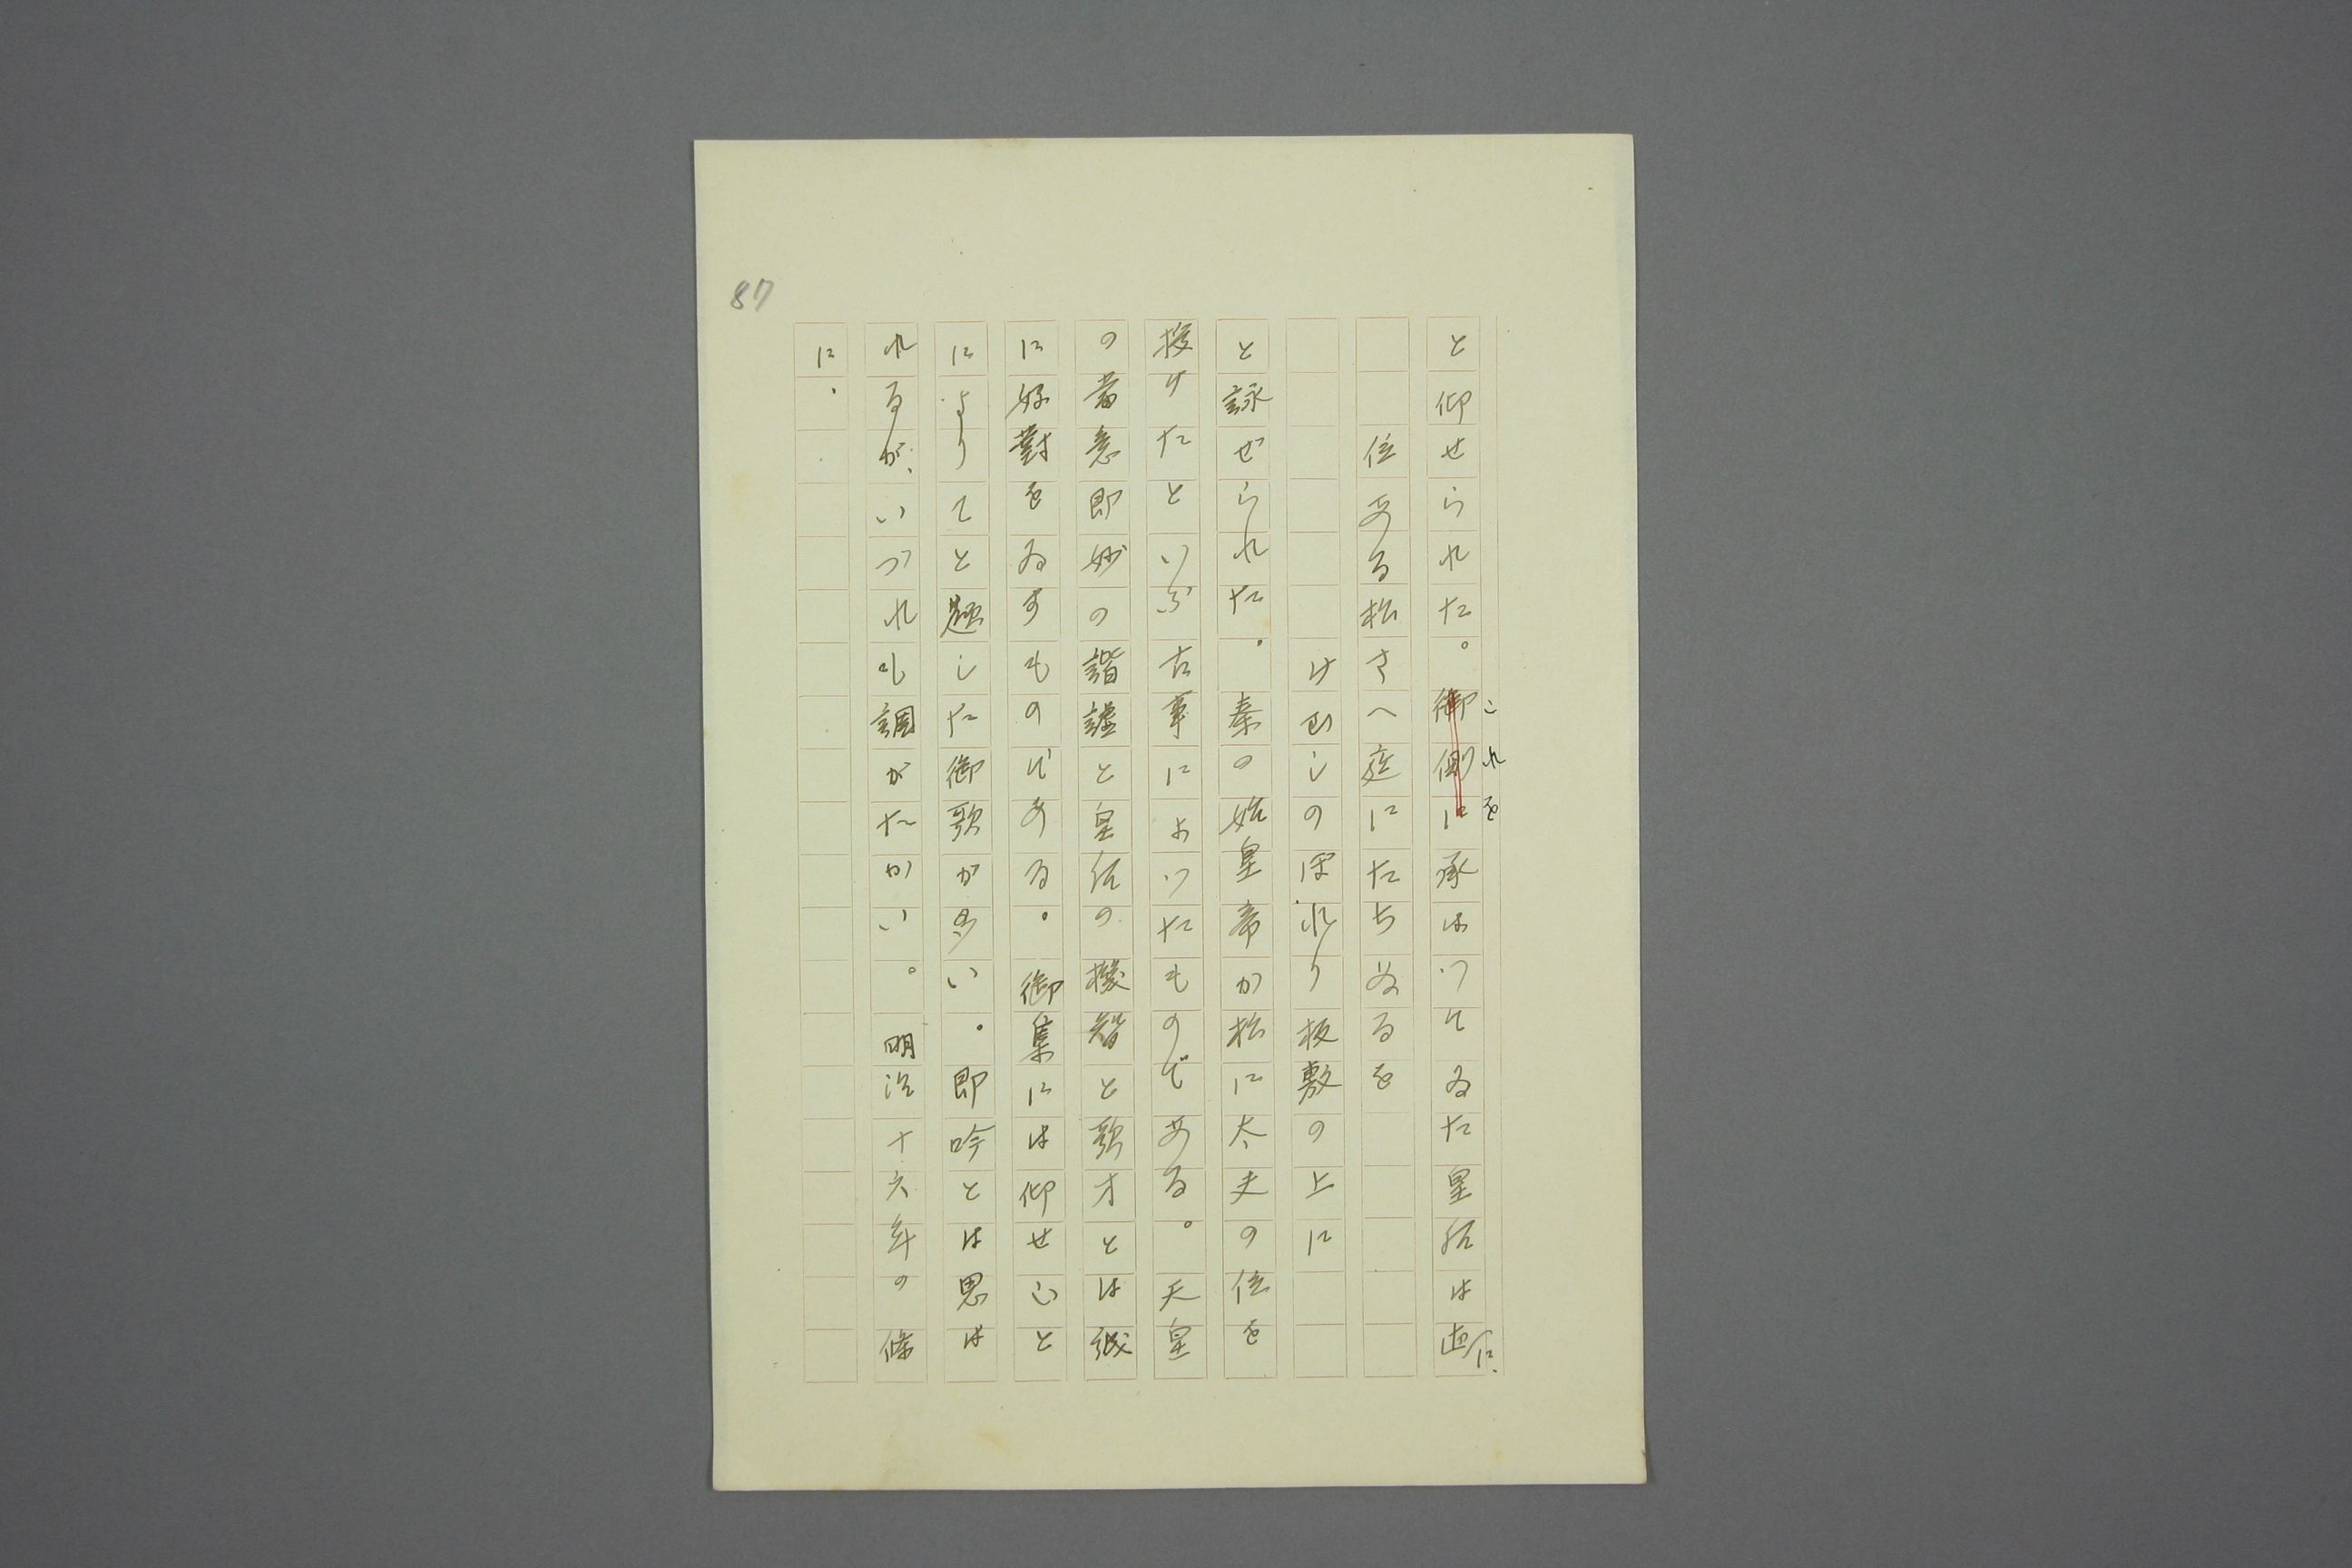 87
と仰せられた。御側に承はつてゐた皇后は直に、
これを
位ある松さへ庭にたちぬるを
けむしのぼれり板敷の上に
と詠ぜられた。秦の始皇帝か松に太夫の位を
授けたといふ古事によつたものである。天皇
の當意即妙の諧謔と皇后の機智と歌才とは誠
に好對を為すものである。御集には仰せごと
によりてと題した御歌が多い。即吟とは思は
れるが、いづれも調がたかい。明治十六年の條
に、